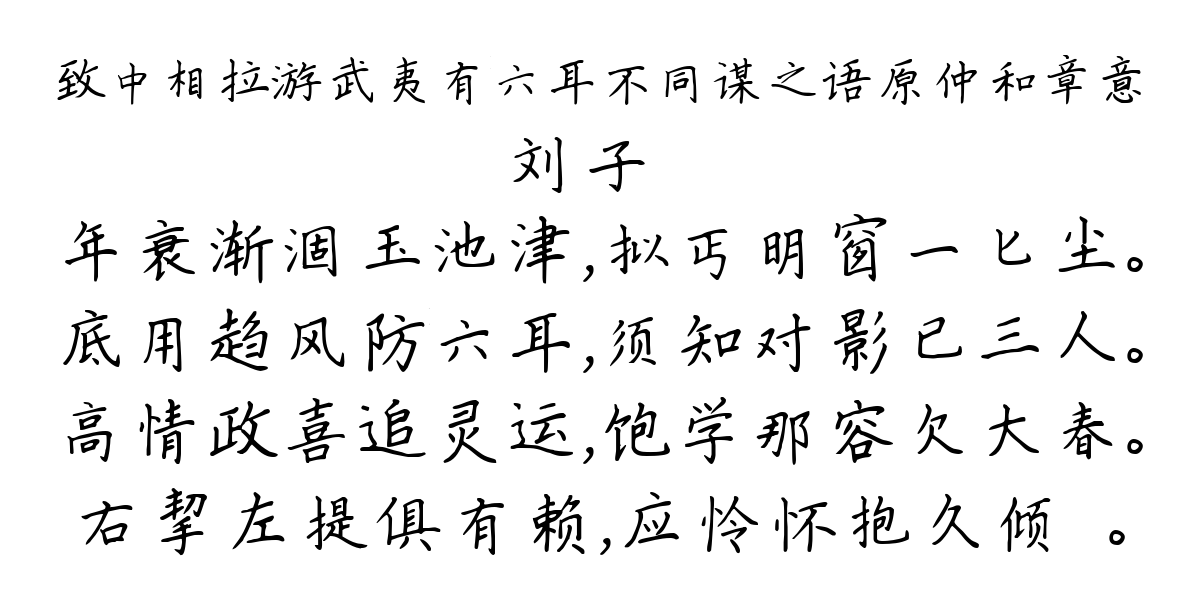 致中相拉游武夷有六耳不同谋之语原仲和章意
刘子
年衰渐涸玉池津,拟丐明窗一匕尘。
底用趋风防六耳,须知对影已三人。
高情政喜追灵运,饱学那容欠大春。
右挈左提俱有赖,应怜怀抱久倾 。